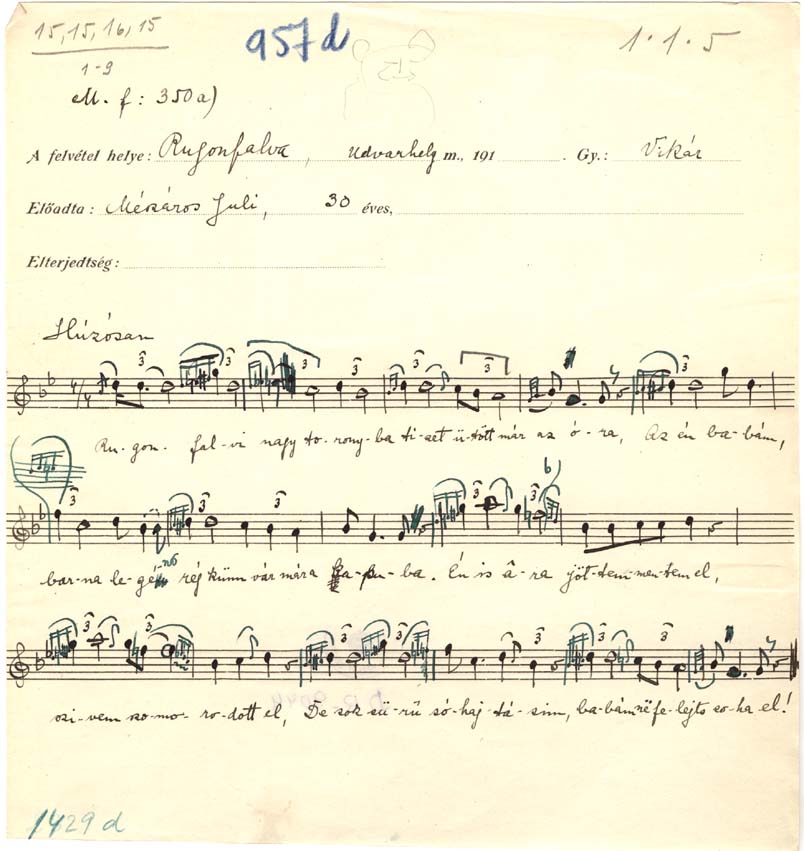 15, 15, 16, 15
957d
1 · 1 · 5
1-9
M. f: 350a)
A felvétel helye: Rugonfalva, Udvarhely m., 191 . Gy.: Vikár
Előadta: Mészáros Juli, 30 éves,
Elterjedtség:
Húzósan
Ru-gon-fal-vi nagy to-rony-ba ti-zet ü-tött már az ó-ra, Az én ba-bám,
bar-na le-gé künn vár mára ba. Én is jöt-tem men-tem el,
szi-vem szo-mo-ro-dott el, De sok sü-rü só-haj-tá-sim, ba-bám fe-lejts so-ha el!
1429 d